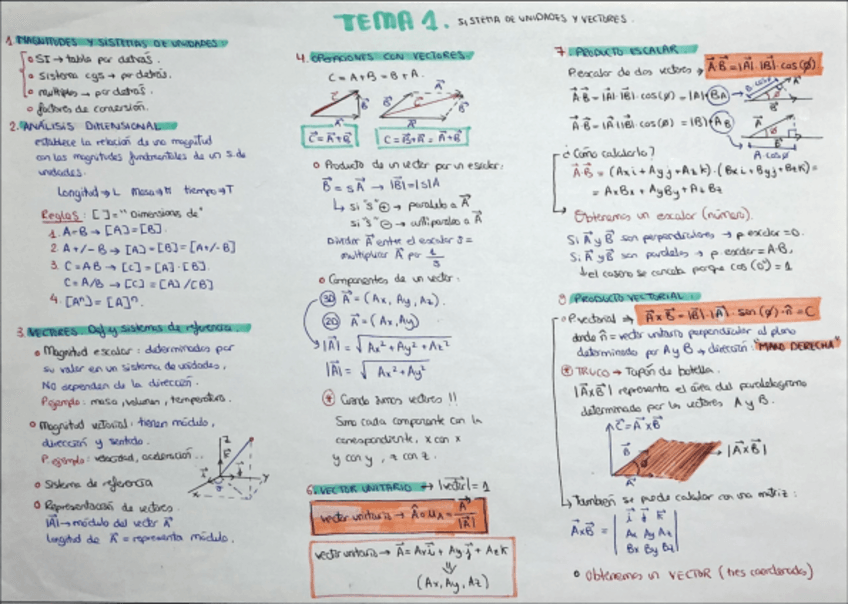 TEMA 1. SISTEMA DE UNIDADES Y VECTORES.
1. MAGNITUDES Y SISTEMAS DE UNIDADES
SI → tabla por detrás.
Sistema cgs → por detrás.
multiplos → por detrás.
factores de conversión.
2. ANÁLISIS DIMENSIONAL
establece la relación de una magnitud
con las magnitudes fundamentales de un s. de
unidades.
Longitud → L Masa → M tiempo → T
Reglas: [ ] = "Dimensiones de"
1. A=B → [A]=[B].
2. A+/-B → [A]=[B]=[A+/-B]
3. C=AB → [C]=[A]·[B].
C=A/B → [C]=[A]/[B]
4. [Aⁿ]=[A]ⁿ.
3. VECTORES. Def y sistemas de referencia
Magnitud escalar: determinados por
su valor en un sistema de unidades,
No dependen de la dirección.
P.ejemplo: masa, volumen, temperatura.
Magnitud vectorial: tienen módulo,
dirección y sentido.
P.ejemplo: velocidad, aceleración..
Sistema de referencia
Representación de vectores:
|A| → módulo del vector A⃗
Longitud de A⃗ = representa módulo.
4. OPERACIONES CON VECTORES
C = A+B = B+A.
C⃗=A⃗+B⃗ C=B⃗+A⃗ = A⃗+B⃗
Producto de un vector por un escalar:
B⃗ = sA⃗ → |B|=|s|A
↳ si "s" ⊕ → paralelo a A⃗
si "s" ⊖ → antiparalelo a A⃗
Dividir A⃗ entre el escalar s =
multiplicar A⃗ por 1/s
Componentes de un vector:
3D A⃗ = (Ax, Ay, Az).
2D A⃗ = (Ax, Ay)
|A⃗| = √Ax²+Ay²+Az²
|A⃗| = √Ax²+Ay²
* Cuando sumas vectores !!
Sumo cada componente con la
correspondiente, x con x
y con y, z con z.
6. VECTOR UNITARIO → |vector|= 1
vector unitario → Â = uA = A⃗/|A⃗|
vector unitario → A⃗ = Axi + Ayj + Azk
⇓
(Ax, Ay, Az)
7. PRODUCTO ESCALAR
P.escalar de dos vectores → A⃗·B⃗ = |A|·|B|·cos(ø)
A⃗·B⃗ = |A|·|B|·cos(ø) = |A|·BA →
A⃗·B⃗ = |A|·|B|·cos(ø) = |B|·AB →
B·cosø
A·cosø
¿Cómo calcularlo?
A⃗·B⃗ = (Axi + Ayj + Azk)·(Bxi + Byj + Bzk) =
= AxBx + AyBy + AzBz
Obtenemos un escalar (número).
Si A⃗ y B⃗ son perpendiculares → p.escalar = 0.
Si A⃗ y B⃗ son paralelos → p.escalar = A·B,
↳ el coseno se cancela porque cos(0°) = 1
8. PRODUCTO VECTORIAL:
P.vectorial → A⃗xB⃗ = |B|·|A|·sen(ø)·n̂ = C
donde n̂ = vector unitario perpendicular al plano
determinado por A y B → dirección: "MANO DERECHA"
* TRUCO → Tapón de botella.
|AxB| representa el área del paralelogramo
determinado por los vectores A y B.
C⃗=A⃗xB⃗
→ |A⃗xB⃗|
↳ También se puede calcular con una matriz:
A⃗xB⃗ = | i j k
Ax Ay Az
Bx By Bz |
Obtenemos un VECTOR (tres coordenadas)